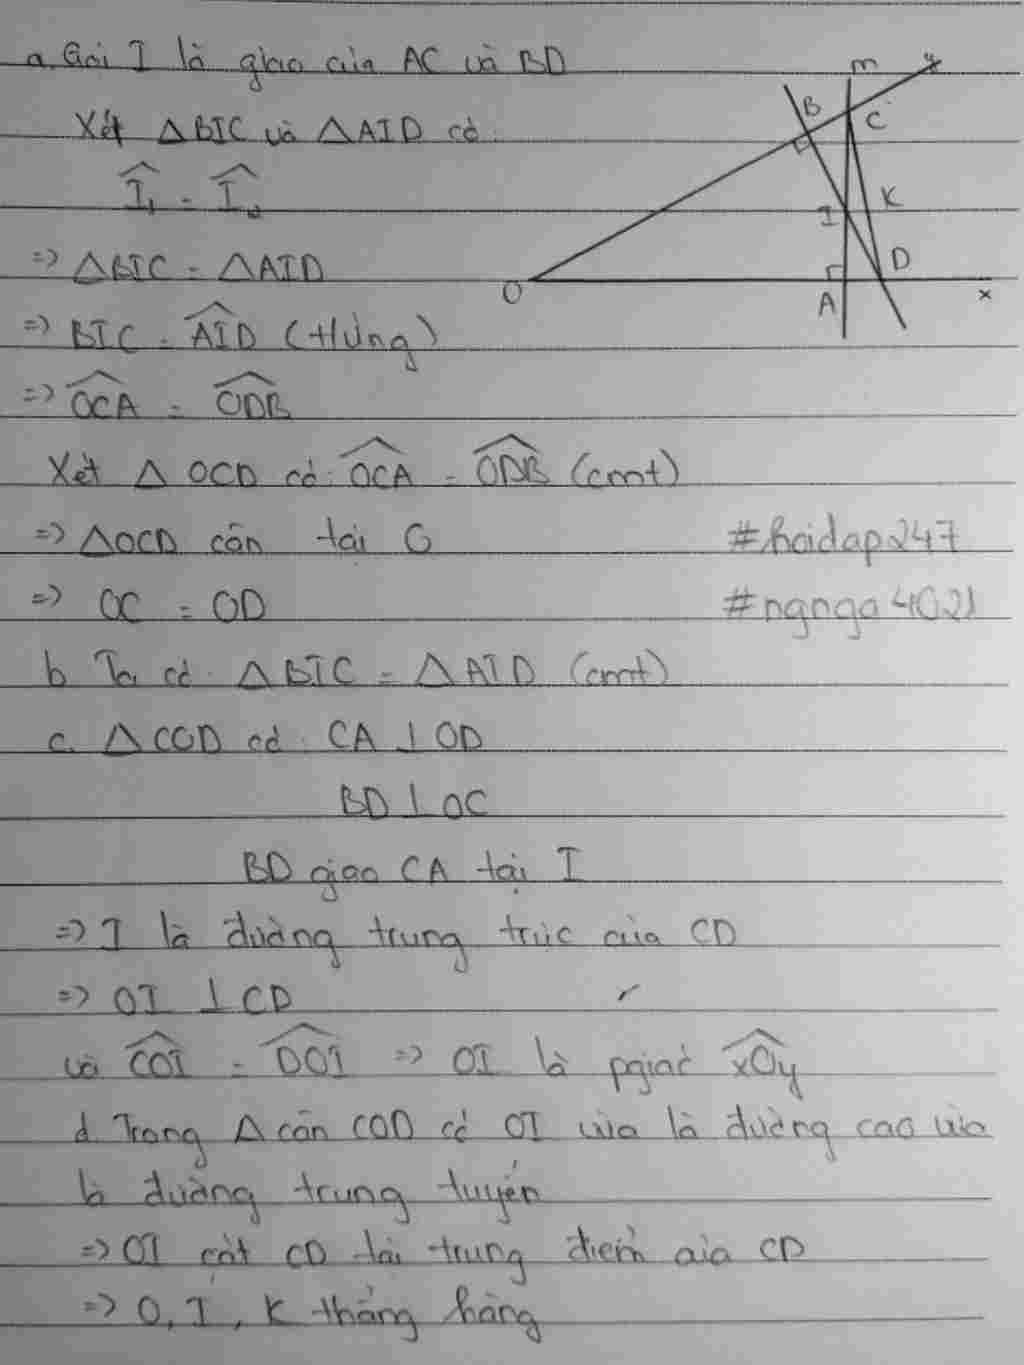 a. Gọi I là giao của AC và BD
Xét ΔBIC và ΔAID có:
Î₁ = Î₂
=> ΔBIC = ΔAID
=> BIC = AID (t/ứng)
=> OCA = ODB
Xét Δ OCD có: OCA = ODB (cmt)
=> ΔOCD cân tại O
=> OC = OD
b. Ta có: ΔBIC = ΔAID (cmt)
c. ΔCOD có: CA ⊥ OD
BD ⊥ OC
BD giao CA tại I
=> I là đường trung trực của CD
=> OI ⊥ CD
và COI = DOI => OI là pgiác xOy
d. Trong Δ cân COD có OI vừa là đường cao vừa
là đường trung tuyến
=> OI cắt CD tại trung điểm của CD
=> O, I, K thẳng hàng
m y
B C
I K
O A D x
#hoidap247
#ngnga4021